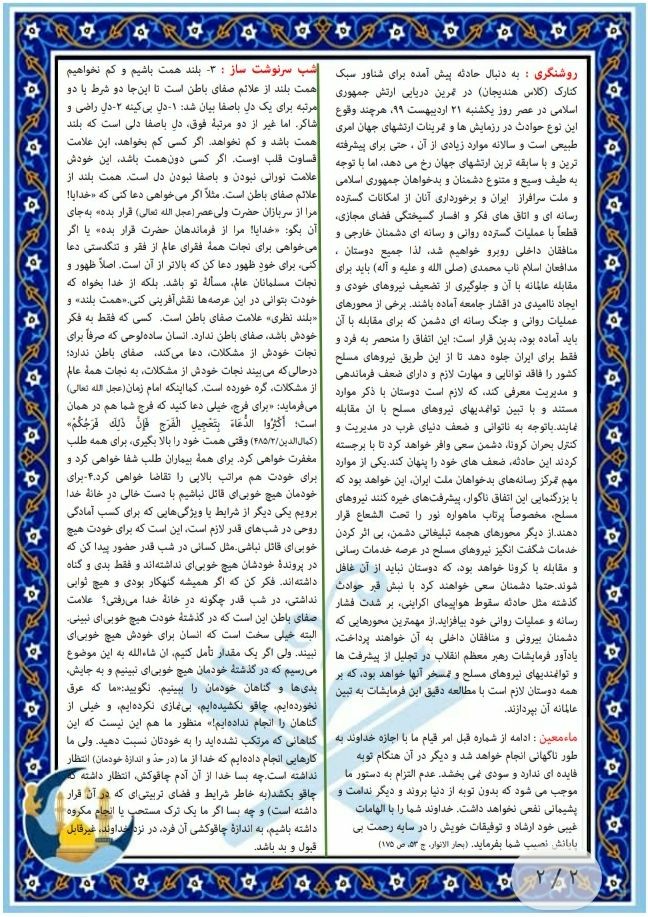 روشنگری : به دنبال حادثه پیش آمده برای شناور سبک
کنارک (کلاس هندیجان) در تمرین دریایی ارتش جمهوری
اسلامی در عصر روز یکشنبه ۲۱ اردیبهشت ۹۹، هرچند وقوع
این نوع حوادث در رزمایش ها و تمرینات ارتشهای جهان امری
طبیعی است و سالانه موارد زیادی از آن ، حتی برای پیشرفته
ترین و با سابقه ترین ارتشهای جهان رخ می دهد، اما با توجه
به طیف وسیع و متنوع دشمنان و بدخواهان جمهوری اسلامی
و ملت سرافراز ایران و برخورداری آنان از امکانات گسترده
رسانه ای و اتاق های فکر و افسار گسیختگی فضای مجازی،
قطعاً با عملیات گسترده روانی و رسانه ای دشمنان خارجی و
منافقان داخلی روبرو خواهیم شد، لذا جمیع دوستان ،
مدافعان اسلام ناب محمدی (صلی الله و علیه و آله) باید برای
مقابله عالمانه با آن و جلوگیری از تضعیف نیروهای خودی و
ایجاد ناامیدی در اقشار جامعه آماده باشند. برخی از محورهای
عملیات روانی و جنگ رسانه ای دشمن که برای مقابله با آن
باید آماده بود، بدین قرار است: این اتفاق را منحصر به فرد و
فقط برای ایران جلوه دهد تا از این طریق نیروهای مسلح
کشور را فاقد توانایی و مهارت لازم و دارای ضعف فرماندهی
و مدیریت معرفی کند، که لازم است دوستان با ذکر موارد
مستند و با تبیین توانمدیهای نیروهای مسلح با ان مقابله
نمایند.باتوجه به ناتوانی و ضعف دنیای غرب در مدیریت و
کنترل بحران کرونا، دشمن سعی وافر خواهد کرد تا با برجسته
کردند این حادثه، ضعف های خود را پنهان کند.یکی از موارد
مهم تمرکز رسانه‌های بدخواهان ملت ایران، این خواهد بود که
با بزرگنمایی این اتفاق ناگوار، پیشرفت‌های خیره کنند نیروهای
مسلح، مخصوصاً پرتاب ماهواره نور را تحت الشعاع قرار
دهند.از دیگر محورهای هجمه تبلیغاتی دشمن، بی اثر کردن
خدمات شگفت انگیز نیروهای مسلح در عرصه خدمات رسانی
و مقابله با کرونا خواهد بود، که دوستان نباید از آن غافل
شوند.حتما دشمنان سعی خواهند کرد با نبش قبر حوادث
گذشته مثل حادثه سقوط هواپیمای اکراینی، بر شدت فشار
رسانه و عملیات روانی خود بیافزاید.از مهمترین محورهایی که
دشمنان بیرونی و منافقان داخلی به آن خواهند پرداخت،
یادآور فرمایشات رهبر معظم انقلاب در تجلیل از پیشرفت ها
و توانمندیهای نیروهای مسلح و تمسخر آنها خواهد بود، که بر
همه دوستان لازم است با مطالعه دقیق این فرمایشات به تبین
عالمانه آن بپردازند.
ماءمعین : ادامه از شماره قبل امر قیام ما با اجازه خداوند به
طور ناگهانی انجام خواهد شد و دیگر در آن هنگام توبه
فایده ای ندارد و سودی نمی بخشد. عدم التزام به دستور ما
موجب می شود که بدون توبه از دنیا بروند و دیگر ندامت و
پشیمانی نفعی نخواهد داشت. خداوند شما را با الهامات
غیبی خود ارشاد و توفیقات خویش را در سایه رحمت بی
پایانش نصیب شما بفرماید. (بحار الانوار، ج ۵۳، ص ۱۷۵)
شب سرنوشت ساز : ۳- بلند همت باشیم و کم نخواهیم
همت بلند از علائم صفای باطن است تا این‌جا دو شرط یا دو
مرتبه برای یک دلِ باصفا بیان شد: ۱-دل بی‌کینه ۲-دل راضی و
شاکر. اما غیر از دو مرتبهٔ فوق، دلِ باصفا دلی است که بلند
همت باشد و کم نخواهد. اگر کسی کم بخواهد، این علامت
قساوت قلب اوست. اگر کسی دون‌همت باشد، این خودش
علامت نورانی نبودن و باصفا نبودن دل است. همت بلند از
علائم صفای باطن است. مثلاً اگر می‌خواهی دعا کنی که «خدایا!
مرا از سربازان حضرت ولی‌عصر(عجل الله تعالی) قرار بده» به‌جای
آن بگو: «خدایا! مرا از فرماندهان حضرت قرار بده» یا اگر
می‌خواهی برای نجات همهٔ فقرای عالَم از فقر و تنگدستی دعا
کنی، برای خودِ ظهور دعا کن که بالاتر از آن است. اصلاً ظهور و
نجات مسلمانان عالم، مسألهٔ تو باشد. بلکه از خدا بخواه که
خودت بتوانی در این عرصه‌ها نقش‌آفرینی کنی.«همت بلند» و
«بلند نظری» علامت صفای باطن است. کسی که فقط به فکر
خودش باشد، صفای باطن ندارد. انسان ساده‌لوحی که صرفاً برای
نجات خودش از مشکلات، دعا می‌کند، صفای باطن ندارد؛
درحالی‌که می‌بیند نجات خودش از مشکلات، به نجات همهٔ عالم
از مشکلات، گره خورده است. کمااینکه امام زمان(عجل الله تعالی)
می‌فرماید: «برای فرج، خیلی دعا کنید که فرج شما هم در همان
است؛ أَكْثِرُوا الدُّعَاءَ بِتَعْجِيلِ الْفَرَجِ فَإِنَّ ذَلِكَ فَرَجُكُمْ»
(کمال‌الدین/۴۸۵/۲) وقتی همت خود را بالا بگیری، برای همه طلب
مغفرت خواهی کرد. برای همهٔ بیماران طلب شفا خواهی کرد و
برای خودت هم مراتب بالایی را تقاضا خواهی کرد.۴-برای
خودمان هیچ خوبی‌ای قائل نباشیم با دست خالی درِ خانهٔ خدا
برویم یکی دیگر از شرایط یا ویژگی‌هایی که برای کسب آمادگی
روحی در شب‌های قدر لازم است، این است که برای خودت هیچ
خوبی‌ای قائل نباشی.مثل کسانی در شب قدر حضور پیدا کن که
در پروندهٔ خودشان هیچ خوبی‌ای نداشته‌اند و فقط بدی و گناه
داشته‌اند. فکر کن که اگر همیشه گنهکار بودی و هیچ ثوابی
نداشتی، در شب قدر چگونه درِ خانهٔ خدا می‌رفتی؟ علامت
صفای باطن این است که در گذشتهٔ خودت هیچ خوبی‌ای نبینی.
البته خیلی سخت است که انسان برای خودش هیچ خوبی‌ای
نبیند. ولی اگر یک مقدار تأمل کنیم، ان شاءالله به این موضوع
می‌رسیم که در گذشتهٔ خودمان هیچ خوبی‌ای نبینیم و به جایش،
بدی‌ها و گناهان خودمان را ببینیم. نگویید:«ما که عرق
نخورده‌ایم، چاقو نکشیده‌ایم، بی‌نمازی نکرده‌ایم، و خیلی از
گناهان را انجام نداده‌ایم!» منظور ما هم این نیست که این
گناهانی که مرتکب نشده‌اید را به خودتان نسبت دهید. ولی ما
کارهایی انجام داده‌ایم که خدا از ما (در حدّ و اندازهٔ خودمان) انتظار
نداشته است.چه بسا خدا از آن آدم چاقوکش، انتظار داشته که
چاقو بکشد(به خاطر شرایط و فضای تربیتی‌ای که در آن قرار
داشته است) و چه بسا اگر ما یک ترک مستحب یا انجام مکروه
داشته باشیم، به اندازهٔ چاقوکشی آن فرد، در نزد خداوند، غیرقابل
قبول و بد باشد.
۲ / ۲